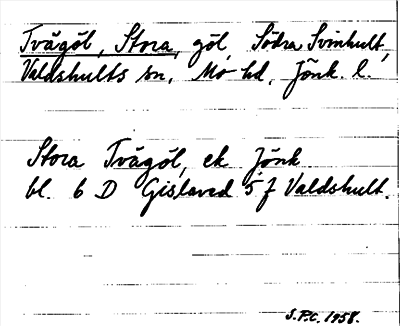 Tvägöl, Stora, göl, Södra Svinhult,
Valdshults sn, Mo hd, Jönk. l.
Stora Tvägöl, ek Jönk
bl. 6 D Gislaved 5 f Valdshult.
S.P.C. 1958.